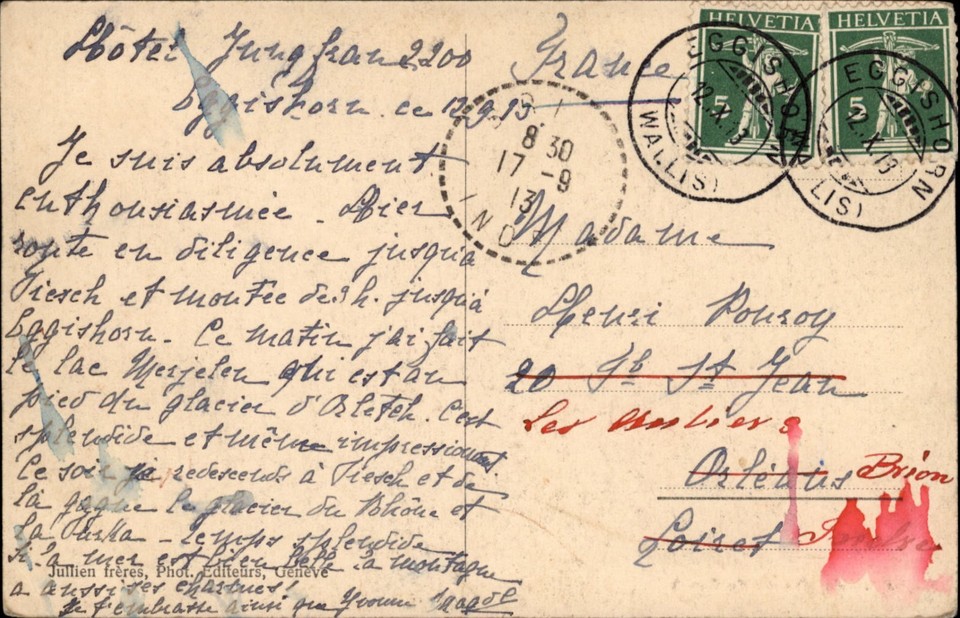 Hôtel Jungfrau 2200
Eggishorn. ce 12.9.13
Je suis absolument
enthousiasmée - Hier
route en diligence jusqu'à
Fiesch et montée de 3 h. jusqu'à
Eggishorn. Ce matin j'ai fait
le lac Merjelen qui est au
pied du glacier d'Aletch. C'est
splendide et même impressionnant
Ce soir je redescends à Fiesch et de
là gagne le glacier du Rhône et
la Furka - temps splendide
Si la mer est bien belle la montagne
a aussi ses charmes
Je t'embrasse ainsi que Yvonne
Jullien frères, Phot. Editeurs, Genève
France
HELVETIA
5
HELVETIA
5
EGGISHORN
12.X.13
(WALLIS)
EGGISHORN
12.X.13
(WALLIS)
8 30
17 -9
13
IND
Madame
Henri Pouroy
20 Fb St Jean
Les
Orléans Brion
Loiret Indre